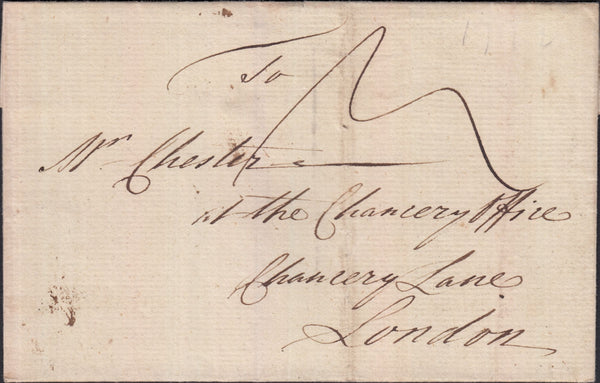 To
Mr Chester
at the Chancery Office
Chancery Lane
London